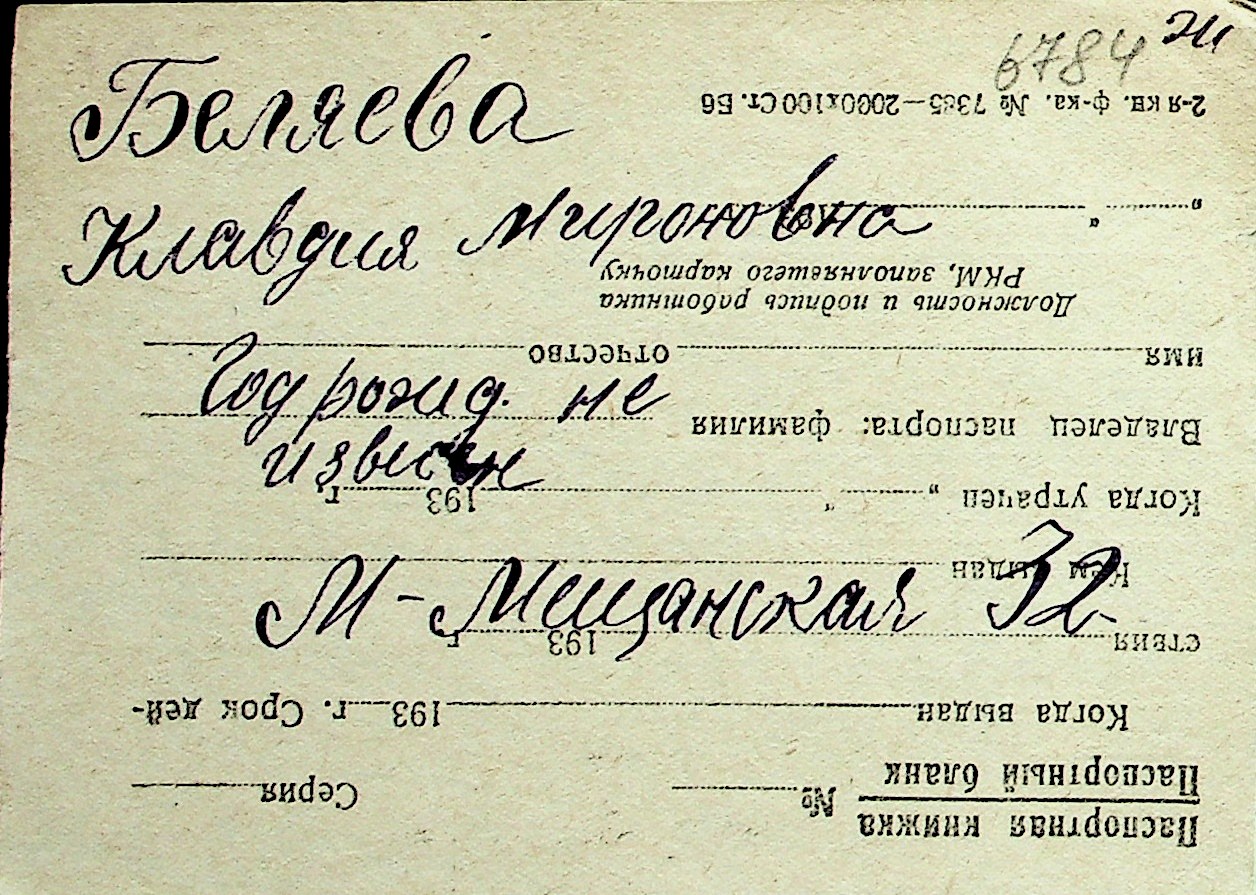 6784 эи
Беляева
Клавдия Мироновна
Год рожд. не
известн
М-Мещанская 32
Паспортная книжка
Паспортный бланк
№ Серия
Когда выдан 193 г. Срок дей-
ствия 193 г.
Кем выдан
Когда утрачен „ " 193 г.
Владелец паспорта: фамилия
имя отчество
Должность и подпись работника
РКМ, заполняющего карточку
„ "
2-я кв. ф-ка. № 7385—2000х100 Ст. Б6